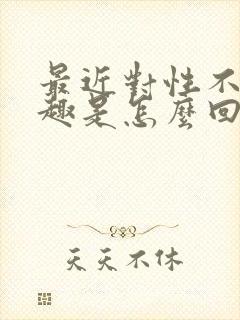 最近對性不
趣是怎麼回
天天不休